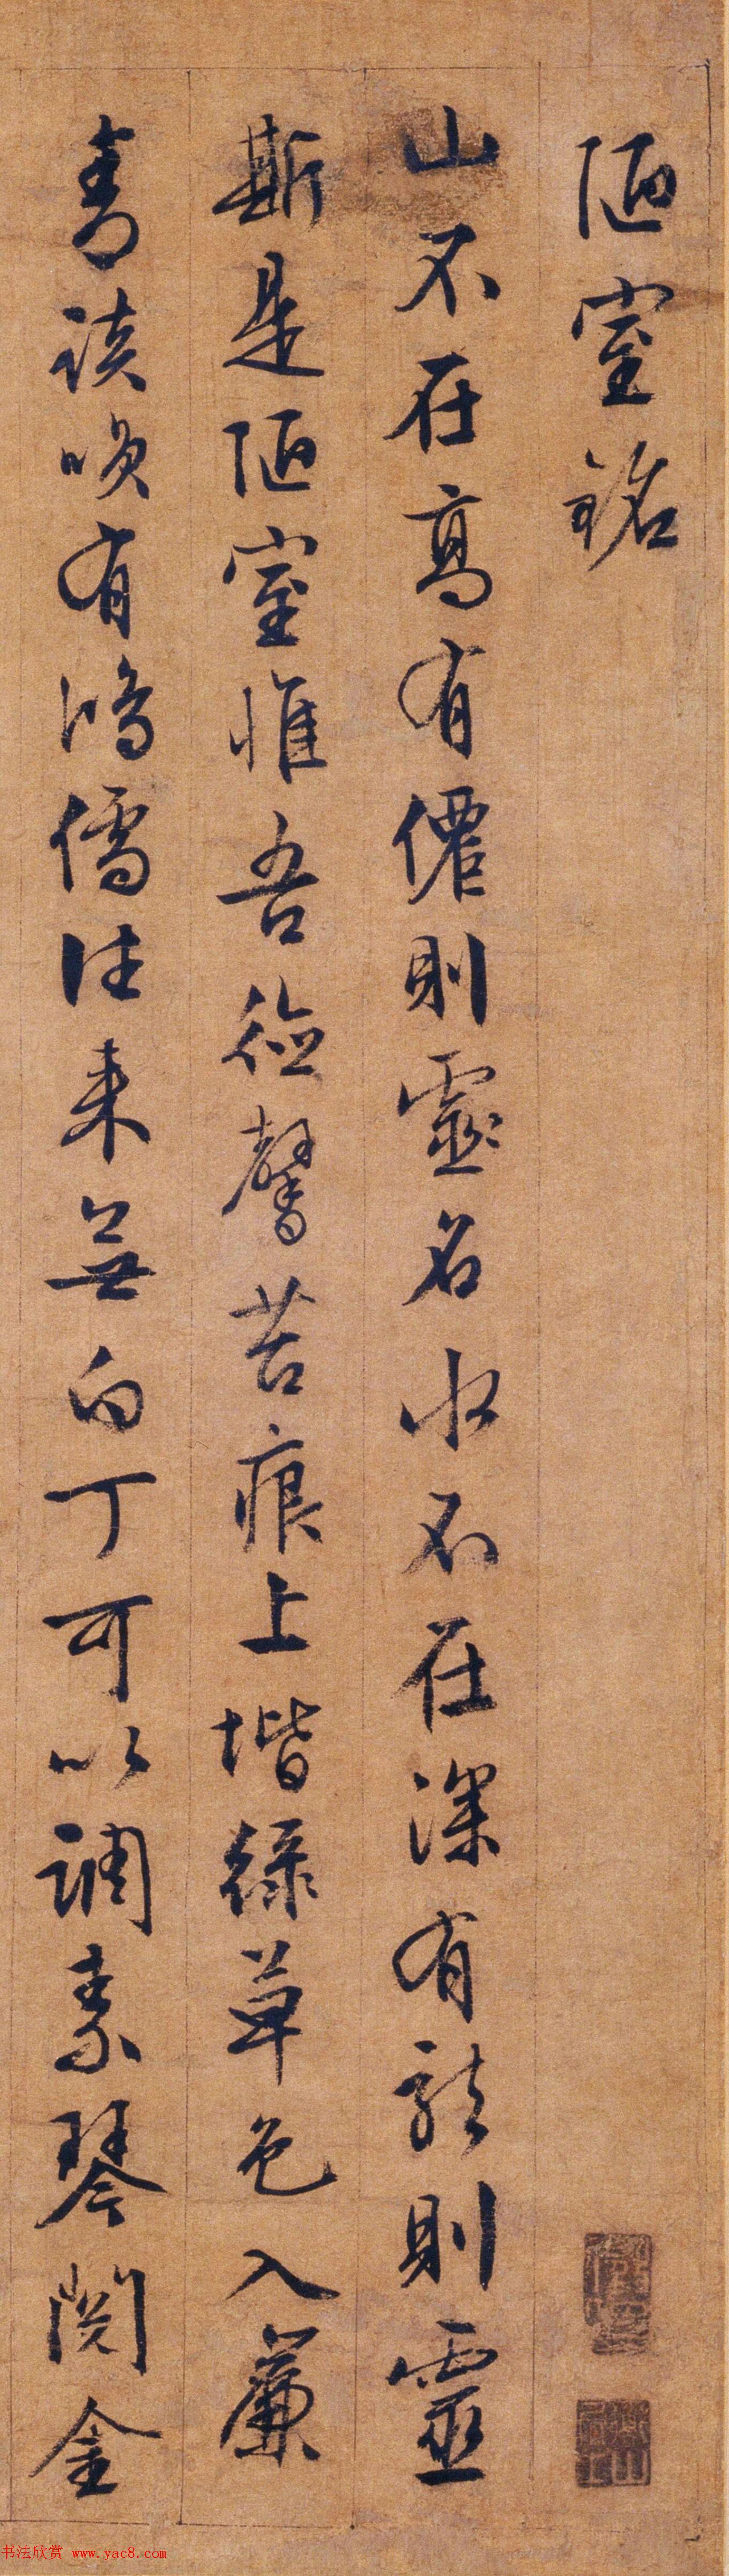 陋室銘
山不在高有僊則靈名水不在深有龍則靈
斯是陋室惟吾德馨苔痕上堦緑草色入簾
青談咲有鴻儒往来無白丁可以調素琴閱金
书法欣赏 www.yac8.com